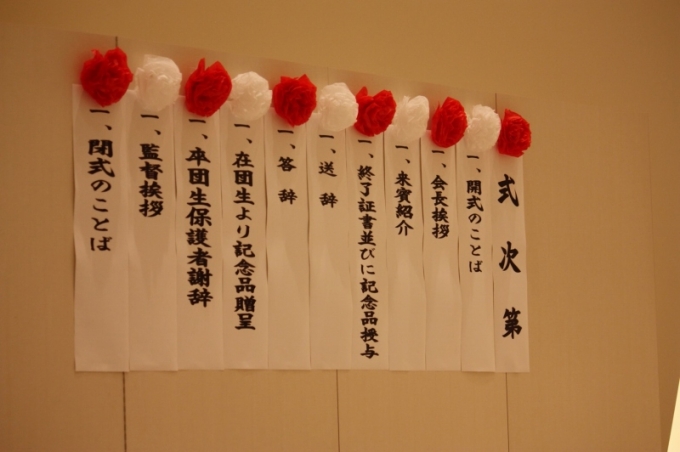 式次第
一、開式のことば
一、会長挨拶
一、来賓紹介
一、終了証書並びに記念品授与
一、送辞
一、答辞
一、在団生より記念品贈呈
一、卒団生保護者謝辞
一、監督挨拶
一、閉式のことば